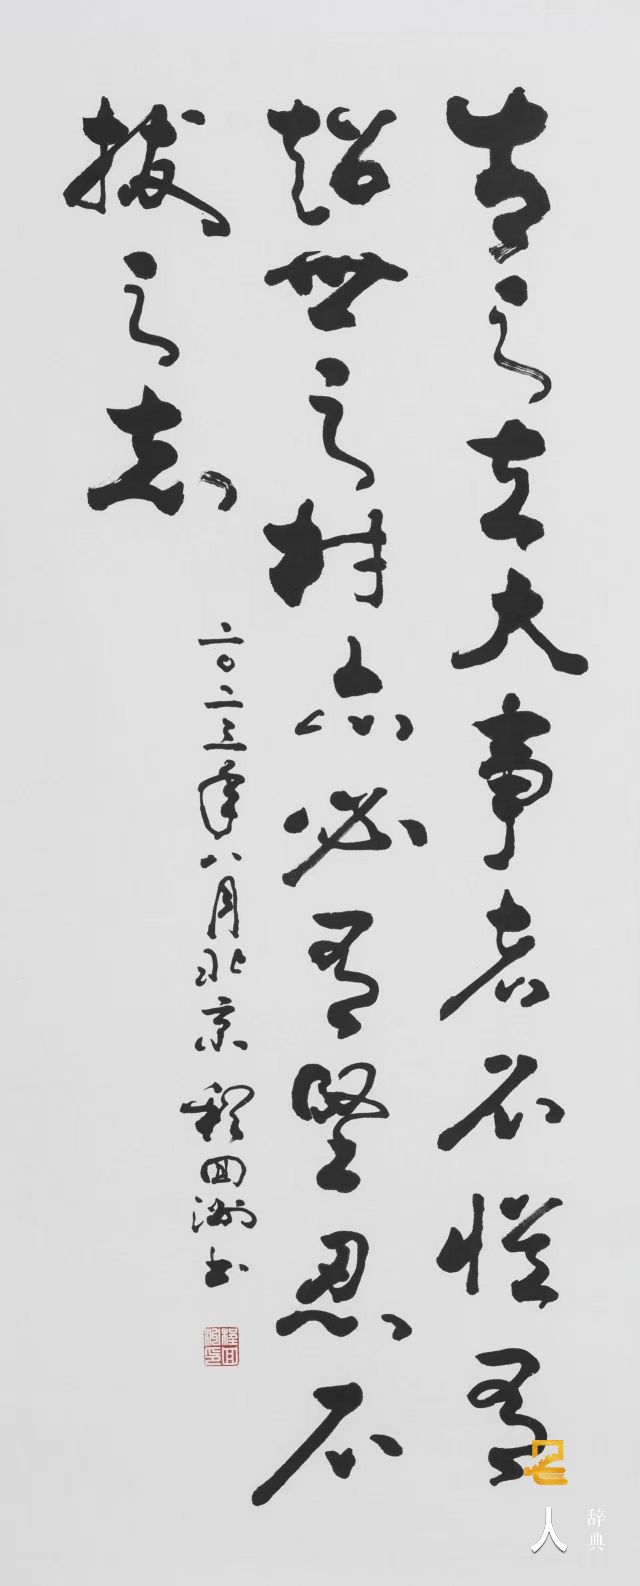 古之立大事者不惟有
超世之材亦必有堅忍不
拔之志
二〇二三年八月北京 程回洲书
程回洲印
名人辞典